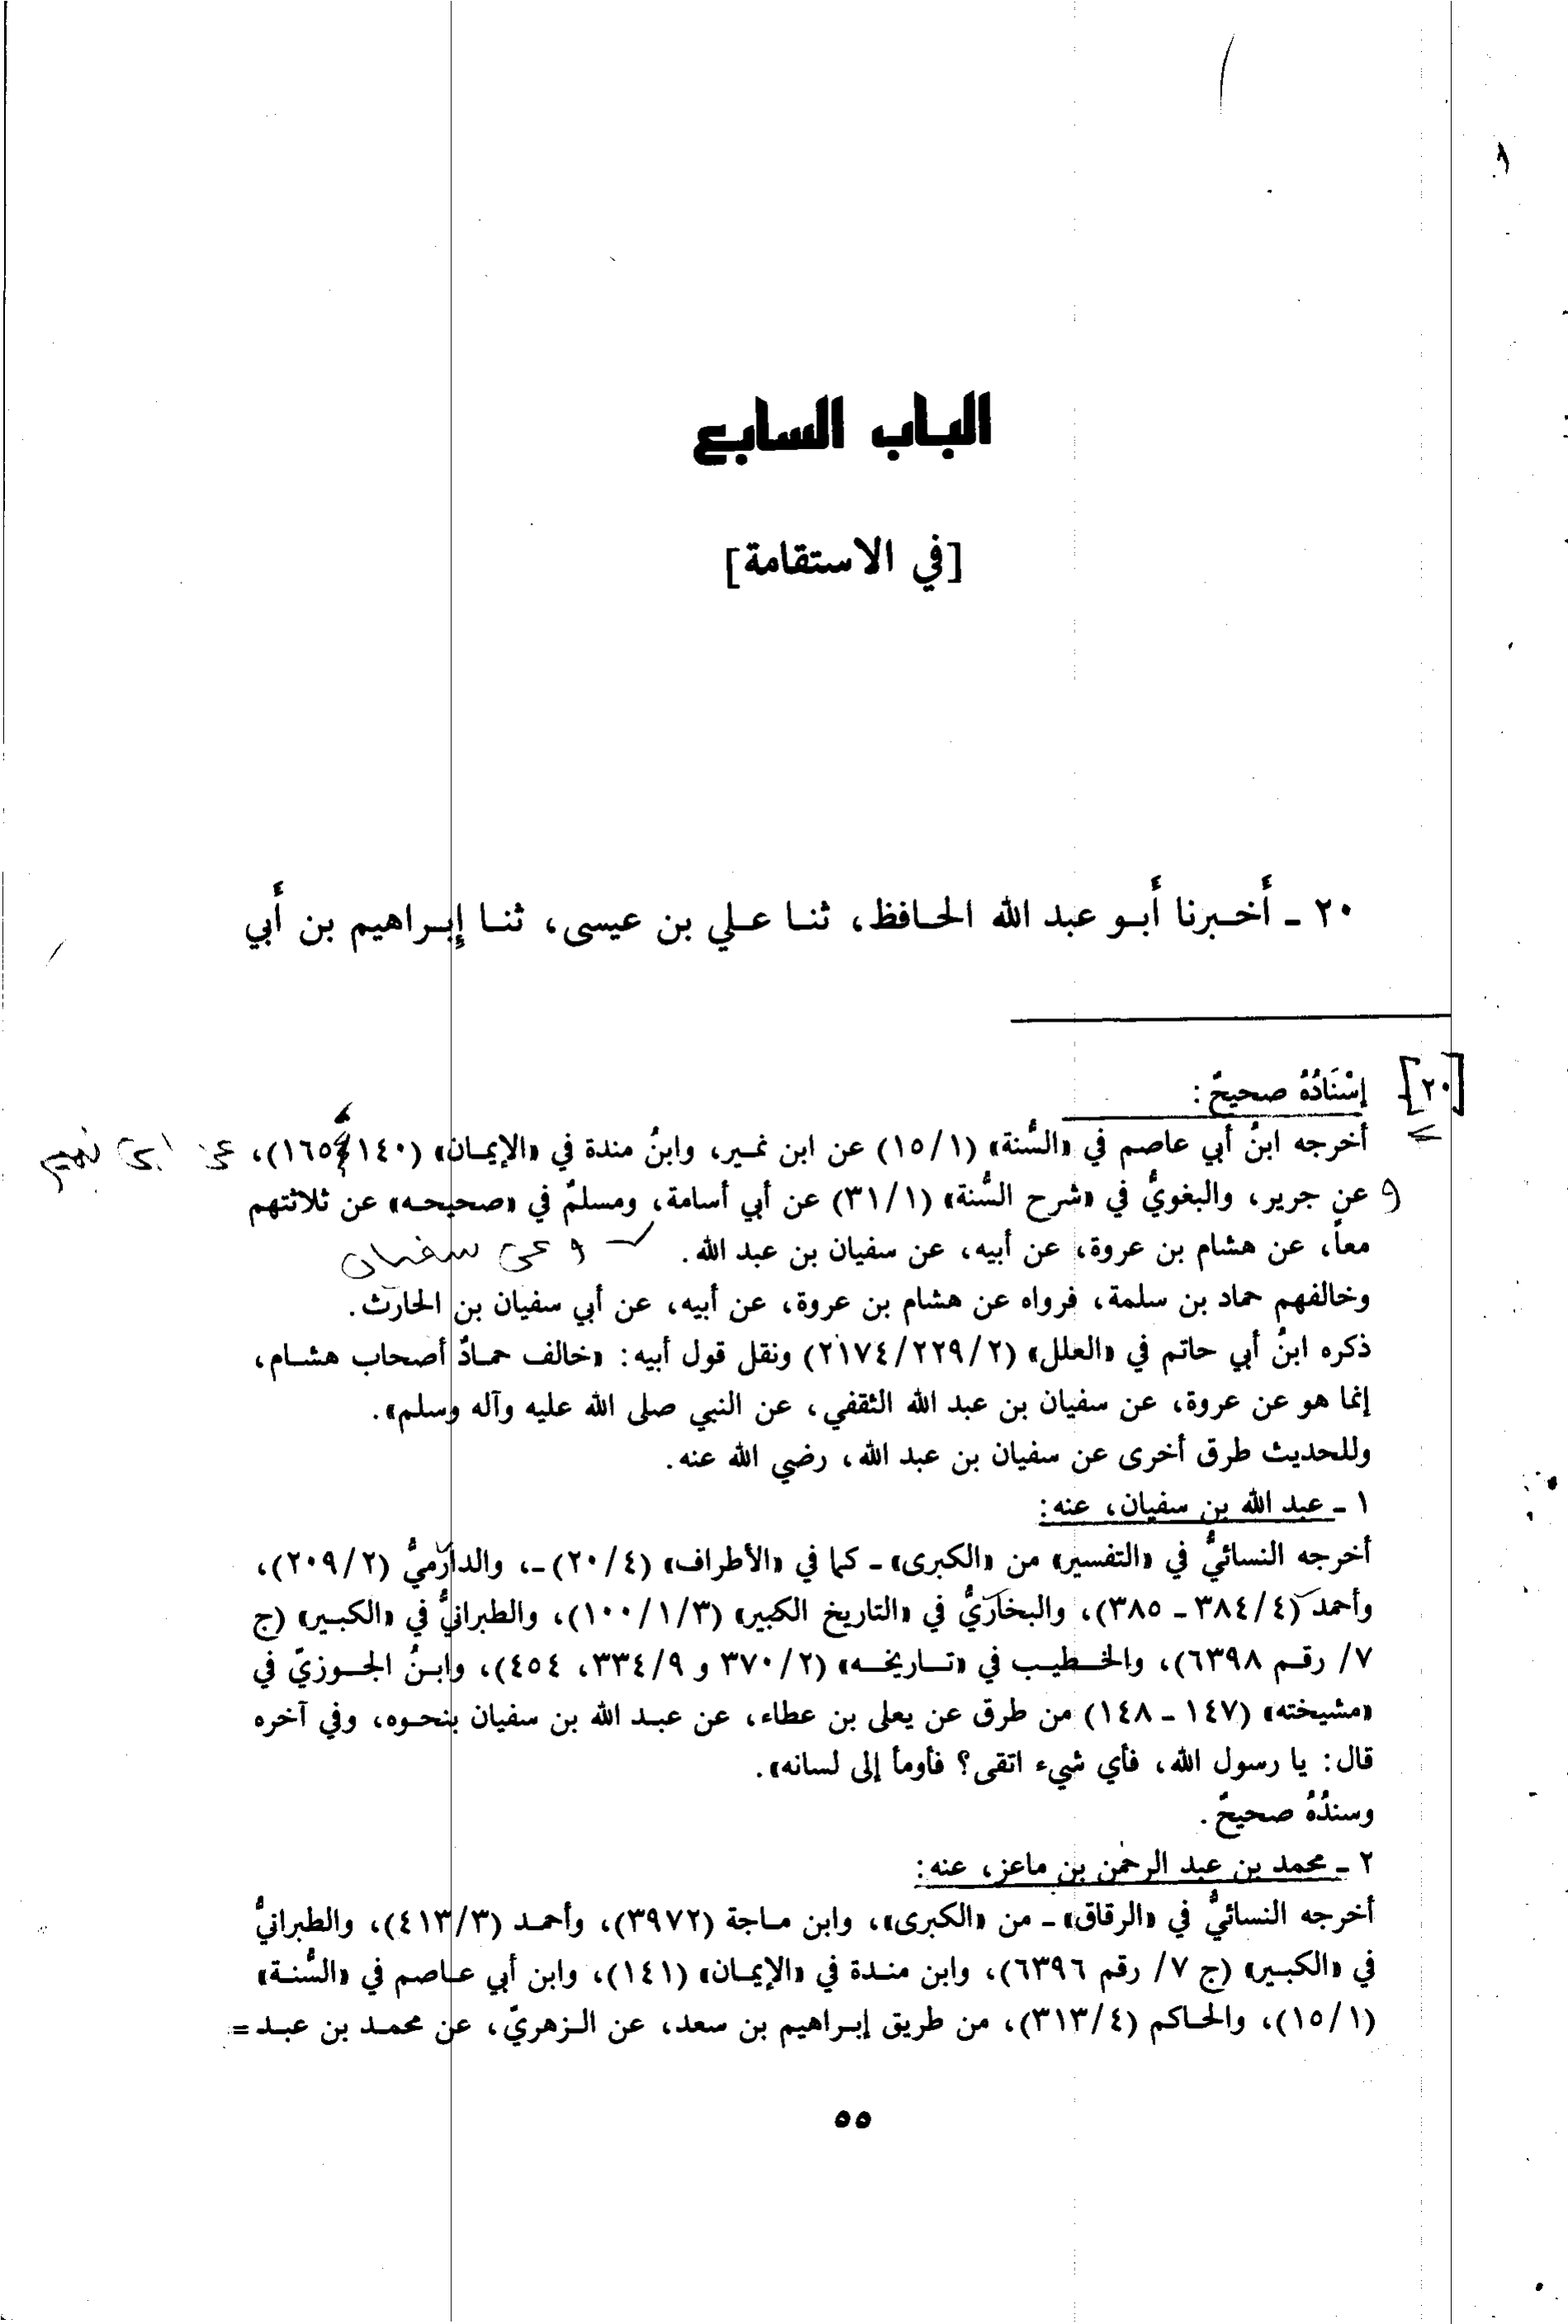 الباب السابع
[في الاستقامة]
٢٠ - أَخبرنا أَبو عبد الله الحافظ، ثنا علي بن عيسى، ثنا إِبراهيم بن أَبي
[٢٠] إسْنَادُهُ صحيحٌ:
أخرجه ابنُ أبي عاصم في «السُّنة» (١٥/١) عن ابن نمير، وابنُ مندة في «الإيمان» (١٤٠، ١٦٥)، عن ابن نمير
و عن جرير، والبغويُّ في «شرح السُّنة» (٣١/١) عن أبي أسامة، ومسلمٌ في «صحيحه» عن ثلاثتهم
معاً، عن هشام بن عروة، عن أبيه، عن سفيان بن عبد الله. وعن سفيان
وخالفهم حماد بن سلمة، فرواه عن هشام بن عروة، عن أبيه، عن أبي سفيان بن الحارث.
ذكره ابنُ أبي حاتم في «العلل» (٢١٧٤/٢٢٩/٢) ونقل قول أبيه: «خالف حمادٌ أصحاب هشام،
إنما هو عن عروة، عن سفيان بن عبد الله الثقفي، عن النبي صلى الله عليه وآله وسلم».
وللحديث طرق أخرى عن سفيان بن عبد الله، رضي الله عنه.
١ - عبد الله بن سفيان، عنه:
أخرجه النسائيُّ في «التفسير» من «الكبرى» - كما في «الأطراف» (٢٠/٤) -، والدارميُّ (٢٠٩/٢)،
وأحمد (٣٨٤/٤ - ٣٨٥)، والبخاريُّ في «التاريخ الكبير» (١٠٠/١/٣)، والطبرانيُّ في «الكبير» (ج
٧/ رقم ٦٣٩٨)، والخطيب في «تاريخه» (٣٧٠/٢ و ٣٣٤/٩، ٤٥٤)، وابنُ الجوزيّ في
«مشيخته» (١٤٧ - ١٤٨) من طرق عن يعلى بن عطاء، عن عبد الله بن سفيان بنحوه، وفي آخره
قال: يا رسول الله، فأي شيء اتقى؟ فأومأ إلى لسانه».
وسندُهُ صحيحٌ.
٢ - محمد بن عبد الرحمٰن بن ماعز، عنه:
أخرجه النسائيُّ في «الرقاق» - من «الكبرى»، وابن ماجة (٣٩٧٢)، وأحمد (٤١٣/٣)، والطبرانيُّ
في «الكبير» (ج ٧/ رقم ٦٣٩٦)، وابن مندة في «الإيمان» (١٤١)، وابن أبي عاصم في «السُّنة»
(١٥/١)، والحاكم (٣١٣/٤)، من طريق إبراهيم بن سعد، عن الزهريّ، عن محمد بن عبد =
٥٥